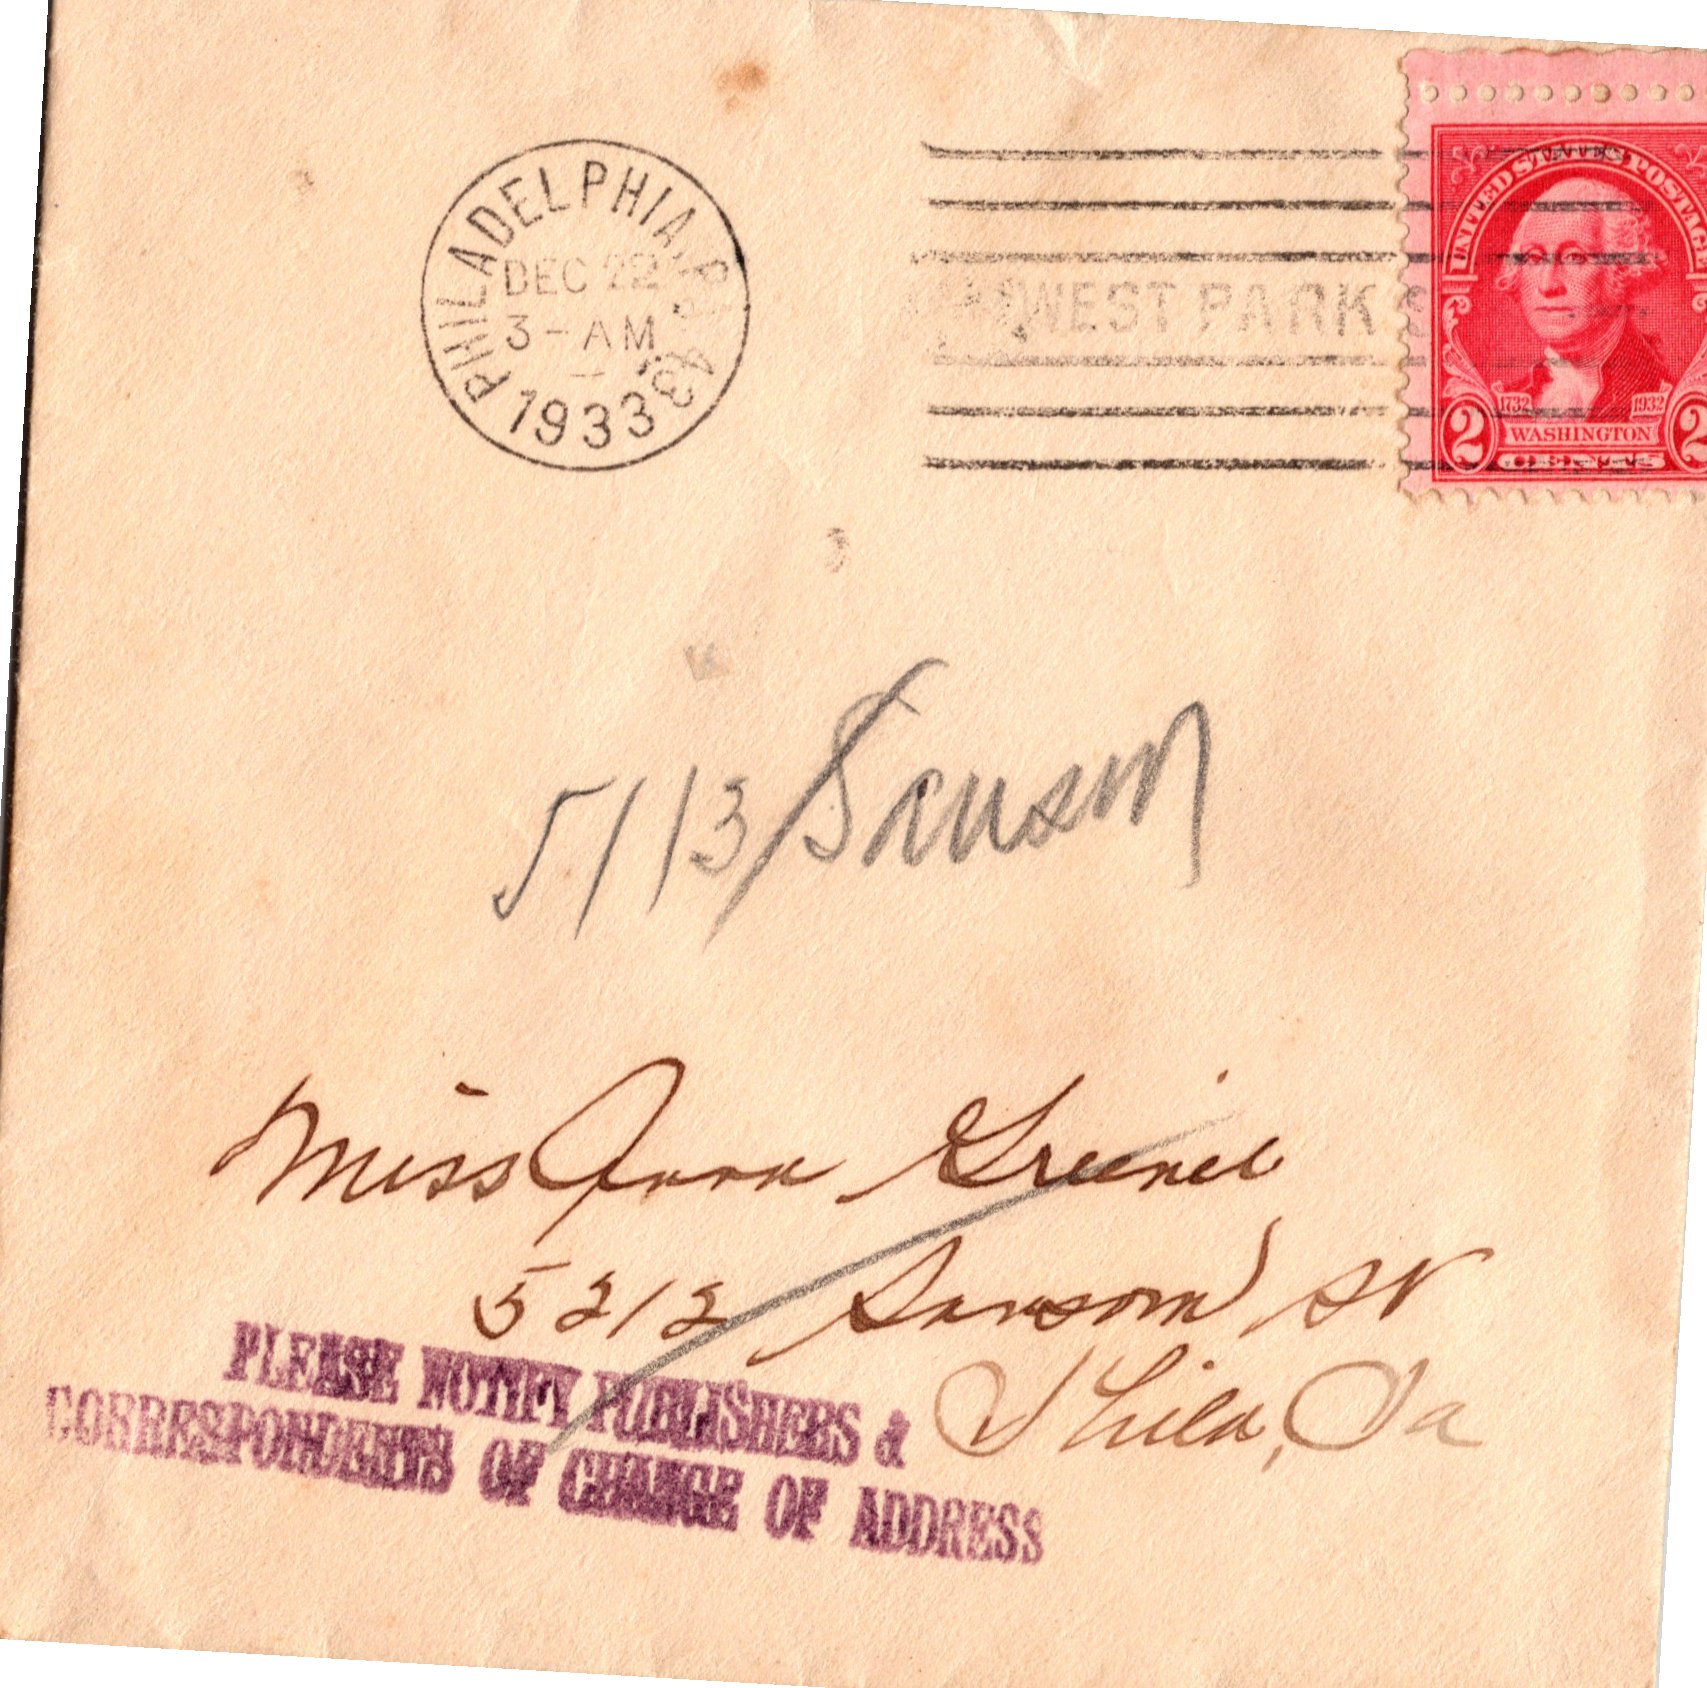 PHILADELPHIA, PA. 43
DEC 22
3 - AM
1933
WEST PARK
UNITED STATES POSTAGE
1732 1932
2 WASHINGTON 2
5113 Sansom
Miss Anna Greene
5212 Sansom St
Phila, Pa
PLEASE NOTIFY PUBLISHERS &
CORRESPONDENTS OF CHANGE OF ADDRESS